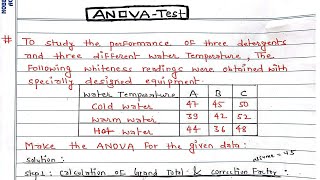 ANOVA-Test
# To study the performance of three detergents
and three different water Temperature, The
Following whiteness readings were obtained with
specially designed equipment.
Water Temperature A B C
Cold water 47 45 50
Warm water 39 42 52
Hot water 44 36 48
Make the ANOVA For the given data:
assume = 45
solution:
step1: Calculation of Grand Total & correction Factor: